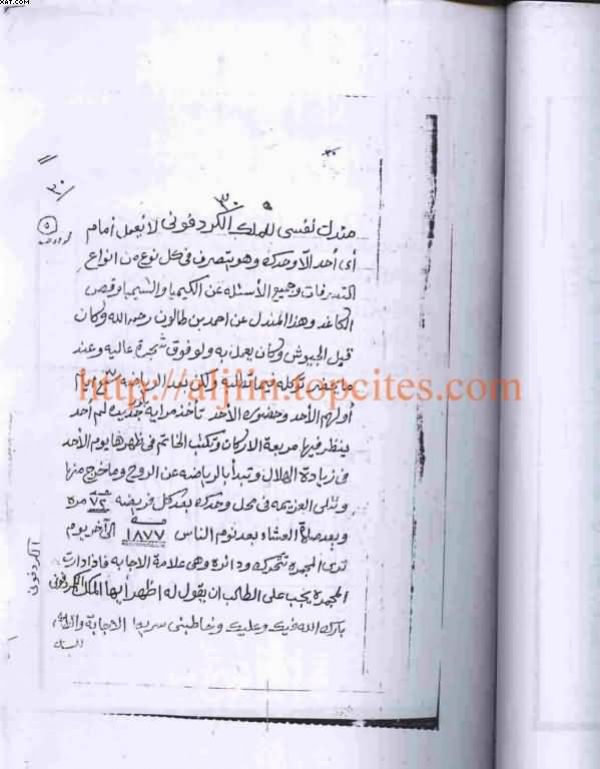 XAT.COM
٣٠
٣٠
٥
مندل نفسى للملك الكردفونى لا يعمل أمام
أى أحد الا وحدك وهو يتصرف فى كل نوع من انواع
التصرفات وجميع الأسئله عن الكيميا والسيميا وقص
الكاغد وهذا المندل عن احمد بن طالون رحمه الله وكان
قبل الجيوش وكان يعمل به ولو فوق شجرة عاليه وعند
ما يحضر توكله فيما تطلبه ولكن بعد الرياضه ٧ أيام
أولهم الأحد وحضوره الأحد تأخذ مرايه جديده لم أحد
ينظر فيها مربعة الاركان وتكتب الخاتم فى ظهرها يوم الأحد
فى زيادة الهلال وتبدأ بالرياضه عن الروح وما خرج منها
وتتلى العزيمه فى محل وحدك بعد كل فريضه ٧٢ مره
وبعد صلاة العشاء بعد نوم الناس ١٨٧٧ الى آخر يوم
ترى المجمرة تتحرك ودائرة وهى علامة الاجابه فاذا دارت
المجمرة يجب على الطالب ان يقول له اظهر أيها الملك الكردفونى
بارك الله فيك وعليك وخاطبنى سريعا الاجابة
الكردفونى
http://aljiin.topcites.com